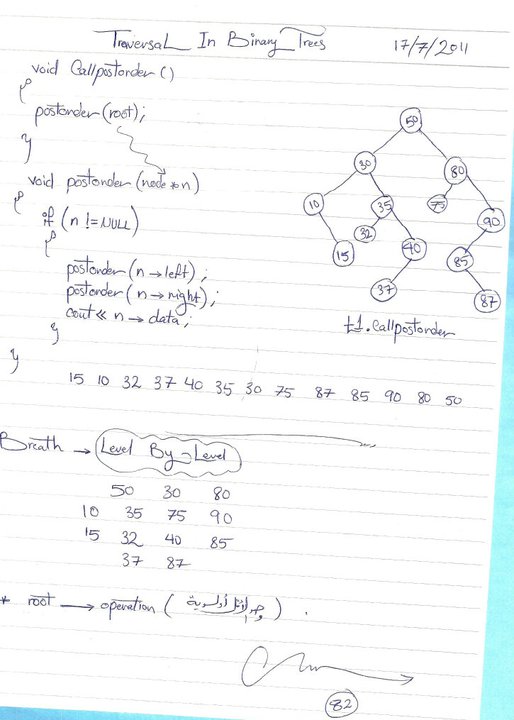 Traversal In Binary Trees 17/7/2011
void Callpostorder ()
{
postorder (root);
}
void postorder (node *n)
{
if (n != NULL)
{
postorder (n → left);
postorder (n → right);
cout << n → data;
}
}
50
30
80
10
35
75
90
15
32
40
85
37
87
t1.callpostorder
15 10 32 37 40 35 30 75 87 85 90 80 50
Breath → Level By-Level
50 30 80
10 35 75 90
15 32 40 85
37 87
* root → operation ( أولوية ) .
82